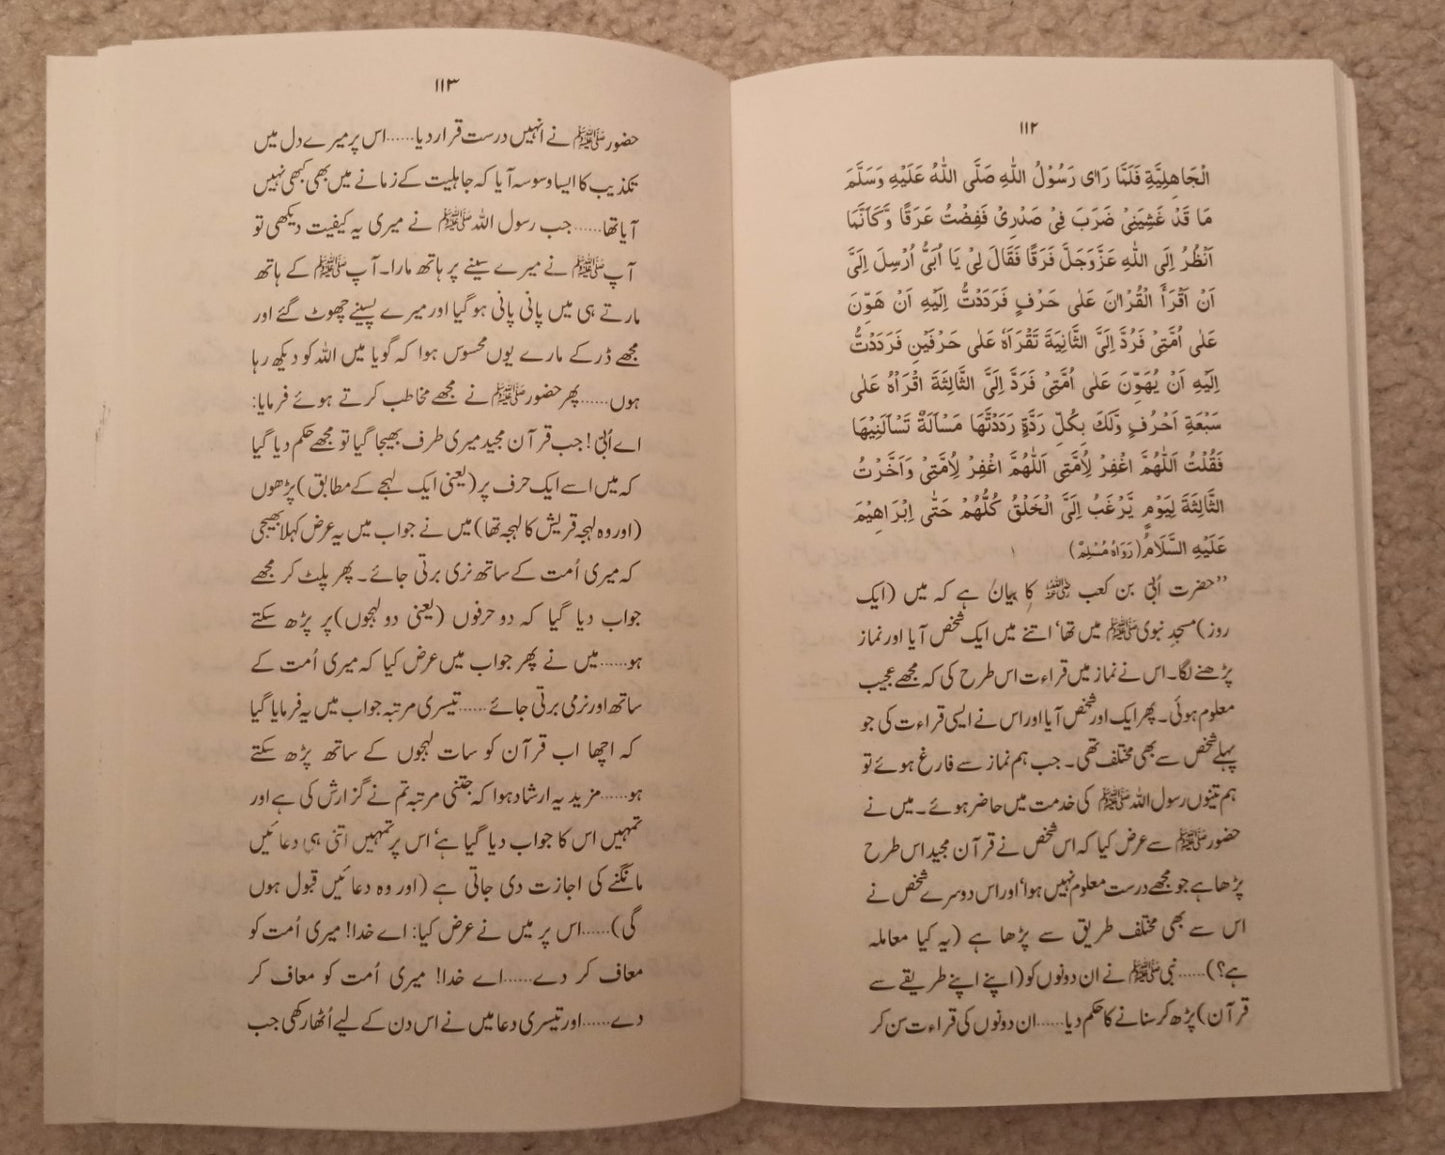 ۱۱۲
الْجَاهِلِيَّةِ فَلَمَّا رَاٰى رَسُوْلُ اللهِ صَلَّى اللهُ عَلَيْهِ وَسَلَّمَ
مَا قَدْ غَشِيَنِىْ ضَرَبَ فِىْ صَدْرِىْ فَفِضْتُ عَرَقًا وَّكَاَنَّمَا
اَنْظُرُ اِلَى اللهِ عَزَّوَجَلَّ فَرَقًا فَقَالَ لِىْ يَا اُبَىُّ اُرْسِلَ اِلَىَّ
اَنْ اَقْرَأَ الْقُرْاٰنَ عَلٰى حَرْفٍ فَرَدَدْتُّ اِلَيْهِ اَنْ هَوِّنَ
عَلٰى اُمَّتِىْ فَرُدَّ اِلَىَّ الثَّانِيَةَ تَقْرَاَهُ عَلٰى حَرْفَيْنِ فَرَدَدْتُّ
اِلَيْهِ اَنْ يُهَوِّنَ عَلٰى اُمَّتِىْ فَرَدَّ اِلَىَّ الثَّالِثَةَ اقْرَاْهُ عَلٰى
سَبْعَةِ اَحْرُفٍ وَّلَكَ بِكُلِّ رَدَّةٍ رَدَدْتُّهَا مَسْاَلَةٌ تَسْاَلَنِيْهَا
فَقُلْتُ اَللّٰهُمَّ اغْفِرْ لِاُمَّتِىْ اَللّٰهُمَّ اغْفِرْ لِاُمَّتِىْ وَاَخَّرْتُ
الثَّالِثَةَ لِيَوْمٍ يَّرْغَبُ اِلَىَّ الْخَلْقُ كُلُّهُمْ حَتّٰى اِبْرَاهِيْمَ
عَلَيْهِ السَّلَامُ (رَوَاهُ مُسْلِمٌ) ۱
”حضرت اُبیّ بن کعب ؓ کا بیان ہے کہ میں (ایک
روز) مسجدِ نبوی ﷺ میں تھا‘ اتنے میں ایک شخص آیا اور نماز
پڑھنے لگا۔ اس نے نماز میں قراءت اس طرح کی کہ مجھے عجیب
معلوم ہوئی۔ پھر ایک اور شخص آیا اور اس نے ایسی قراءت کی جو
پہلے شخص سے بھی مختلف تھی۔ جب ہم نماز سے فارغ ہوئے تو
ہم تینوں رسول اللہ ﷺ کی خدمت میں حاضر ہوئے۔ میں نے
حضور ﷺ سے عرض کیا کہ اس شخص نے قرآن مجید اس طرح
پڑھا ہے جو مجھے درست معلوم نہیں ہوا‘ اور اس دوسرے شخص نے
اس سے بھی مختلف طریق سے پڑھا ہے (یہ کیا معاملہ
ہے؟)......نبی ﷺ نے ان دونوں کو (اپنے اپنے طریقے سے
قرآن) پڑھ کر سنانے کا حکم دیا......ان دونوں کی قراءت سن کر
۱۱۳
حضور ﷺ نے انہیں درست قرار دیا......اس پر میرے دل میں
تکذیب کا ایسا وسوسہ آیا کہ جاہلیت کے زمانے میں بھی کبھی نہیں
آیا تھا......جب رسول اللہ ﷺ نے میری یہ کیفیت دیکھی تو
آپ ﷺ نے میرے سینے پر ہاتھ مارا۔ آپ ﷺ کے ہاتھ
مارتے ہی میں پانی پانی ہو گیا اور میرے پسینے چھوٹ گئے اور
مجھے ڈر کے مارے یوں محسوس ہوا کہ گویا میں اللہ کو دیکھ رہا
ہوں......پھر حضور ﷺ نے مجھے مخاطب کرتے ہوئے فرمایا:
اے اُبیّ! جب قرآن مجید میری طرف بھیجا گیا تو مجھے حکم دیا گیا
کہ میں اسے ایک حرف پر (یعنی ایک لہجے کے مطابق) پڑھوں
(اور وہ لہجہ قریش کا لہجہ تھا) میں نے جواب میں یہ عرض کہلا بھیجی
کہ میری اُمت کے ساتھ نرمی برتی جائے۔ پھر پلٹ کر مجھے
جواب دیا گیا کہ دو حرفوں (یعنی دو لہجوں) پر پڑھ سکتے
ہو......میں نے پھر جواب میں عرض کیا کہ میری اُمت کے
ساتھ اور نرمی برتی جائے......تیسری مرتبہ جواب میں یہ فرمایا گیا
کہ اچھا اب قرآن کو سات لہجوں کے ساتھ پڑھ سکتے
ہو......مزید یہ ارشاد ہوا کہ جتنی مرتبہ تم نے گزارش کی ہے اور
تمہیں اس کا جواب دیا گیا ہے‘ اس پر تمہیں اتنی ہی دعائیں
مانگنے کی اجازت دی جاتی ہے (اور وہ دعائیں قبول ہوں
گی)......اس پر میں نے عرض کیا: اے خدا! میری اُمت کو
معاف کر دے......اے خدا! میری اُمت کو معاف کر
دے......اور تیسری دعا میں نے اس دن کے لیے اُٹھا رکھی جب